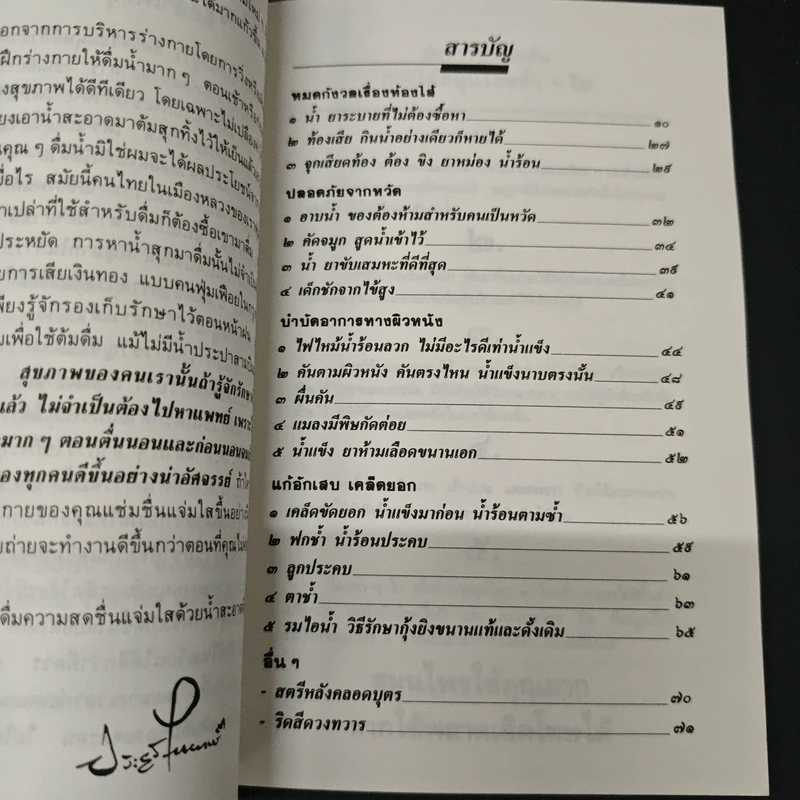 อกจากการบริหารร่างกายโดยการวิ่งหรือ
ฝึกร่างกายให้ดื่มน้ำมาก ๆ ตอนเช้าหรือ
งสุขภาพได้ดีทีเดียว โดยเฉพาะไม่เปลือง
ยงเอาน้ำสะอาดมาต้มสุกทิ้งไว้ให้เย็นแล้ว
คุณ ๆ ดื่มน้ำมิใช่ผมจะได้ผลประโยชน์จาก
อไร สมัยนี้คนไทยในเมืองหลวงของเรา
าเปล่าที่ใช้สำหรับดื่มก็ต้องซื้อเขามาดื่ม
ประหยัด การหาน้ำสุกมาดื่มนั้นไม่จำเป็น
ยการเสียเงินทอง แบบคนฟุ่มเฟือยใน
พียงรู้จักรองเก็บรักษาไว้ตอนหน้าฝน
มเพื่อใช้ต้มดื่ม แม้ไม่มีน้ำประปาสา
สุขภาพของคนเรานั้นถ้ารู้จักรักษา
แล้ว ไม่จำเป็นต้องไปหาแพทย์ เพราะ
มาก ๆ ตอนตื่นนอนและก่อนนอน
องทุกคนดีขึ้นอย่างน่าอัศจรรย์
กายของคุณแช่มชื่นแจ่มใสขึ้นอย่าง
บถ่ายจะทำงานดีขึ้นกว่าตอนที่คุณไม่
ดื่มความสดชื่นแจ่มใสด้วยน้ำสะอาด
สารบัญ
หมดกังวลเรื่องท้องไส้
๑ น้ำ ยาระบายที่ไม่ต้องซื้อหา ๑๐
๒ ท้องเสีย กินน้ำอย่างเดียวก็หายได้ ๒๗
๓ จุกเสียดท้อง ต้อง ขิง ยาหม่อง น้ำร้อน ๒๙
ปลอดภัยจากหวัด
๑ อาบน้ำ ของต้องห้ามสำหรับคนเป็นหวัด ๓๒
๒ คัดจมูก สูดน้ำเข้าไว้ ๓๔
๓ น้ำ ยาขับเสมหะที่ดีที่สุด ๓๙
๔ เด็กชักจากไข้สูง ๔๑
บำบัดอาการทางผิวหนัง
๑ ไฟไหม้น้ำร้อนลวก ไม่มีอะไรดีเท่าน้ำแข็ง ๔๔
๒ คันตามผิวหนัง คันตรงไหน น้ำแข็งนาบตรงนั้น ๔๘
๓ ผื่นคัน ๔๙
๔ แมลงมีพิษกัดต่อย ๕๑
๕ น้ำแข็ง ยาห้ามเลือดขนานเอก ๕๒
แก้อักเสบ เคล็ดยอก
๑ เคล็ดขัดยอก น้ำแข็งมาก่อน น้ำร้อนตามซ้ำ ๕๖
๒ ฟกช้ำ น้ำร้อนประคบ ๕๙
๓ ลูกประคบ ๖๑
๔ ตาช้ำ ๖๓
๕ รมไอน้ำ วิธีรักษากุ้งยิงขนานแท้และดั้งเดิม ๖๕
อื่น ๆ
- สตรีหลังคลอดบุตร ๗๐
- ริดสีดวงทวาร ๗๑